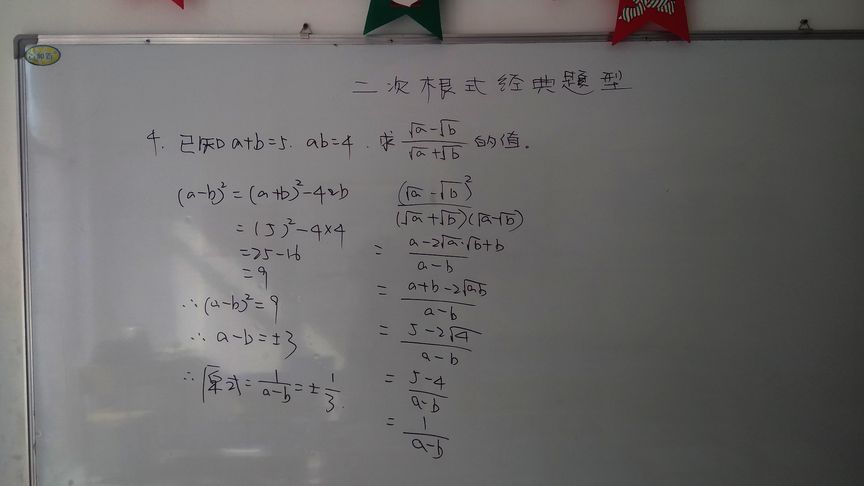 二次根式经典题型
4. 已知a+b=5. ab=4. 求 (√a-√b)/(√a+√b) 的值.
(a-b)²=(a+b)²-4ab
=(5)²-4×4
=25-16
=9
∴(a-b)²=9
∴ a-b=±3
∴原式=1/(a-b)=±1/3.
(√a-√b)²/(√a+√b)(√a-√b)
= (a-2√a·√b+b)/(a-b)
= (a+b-2√ab)/(a-b)
= (5-2√4)/(a-b)
= (5-4)/(a-b)
= 1/(a-b)